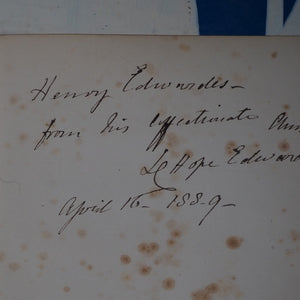 Henry Edwardes -
from his affectionate
Hope Edwar
April 16 - 1889 -